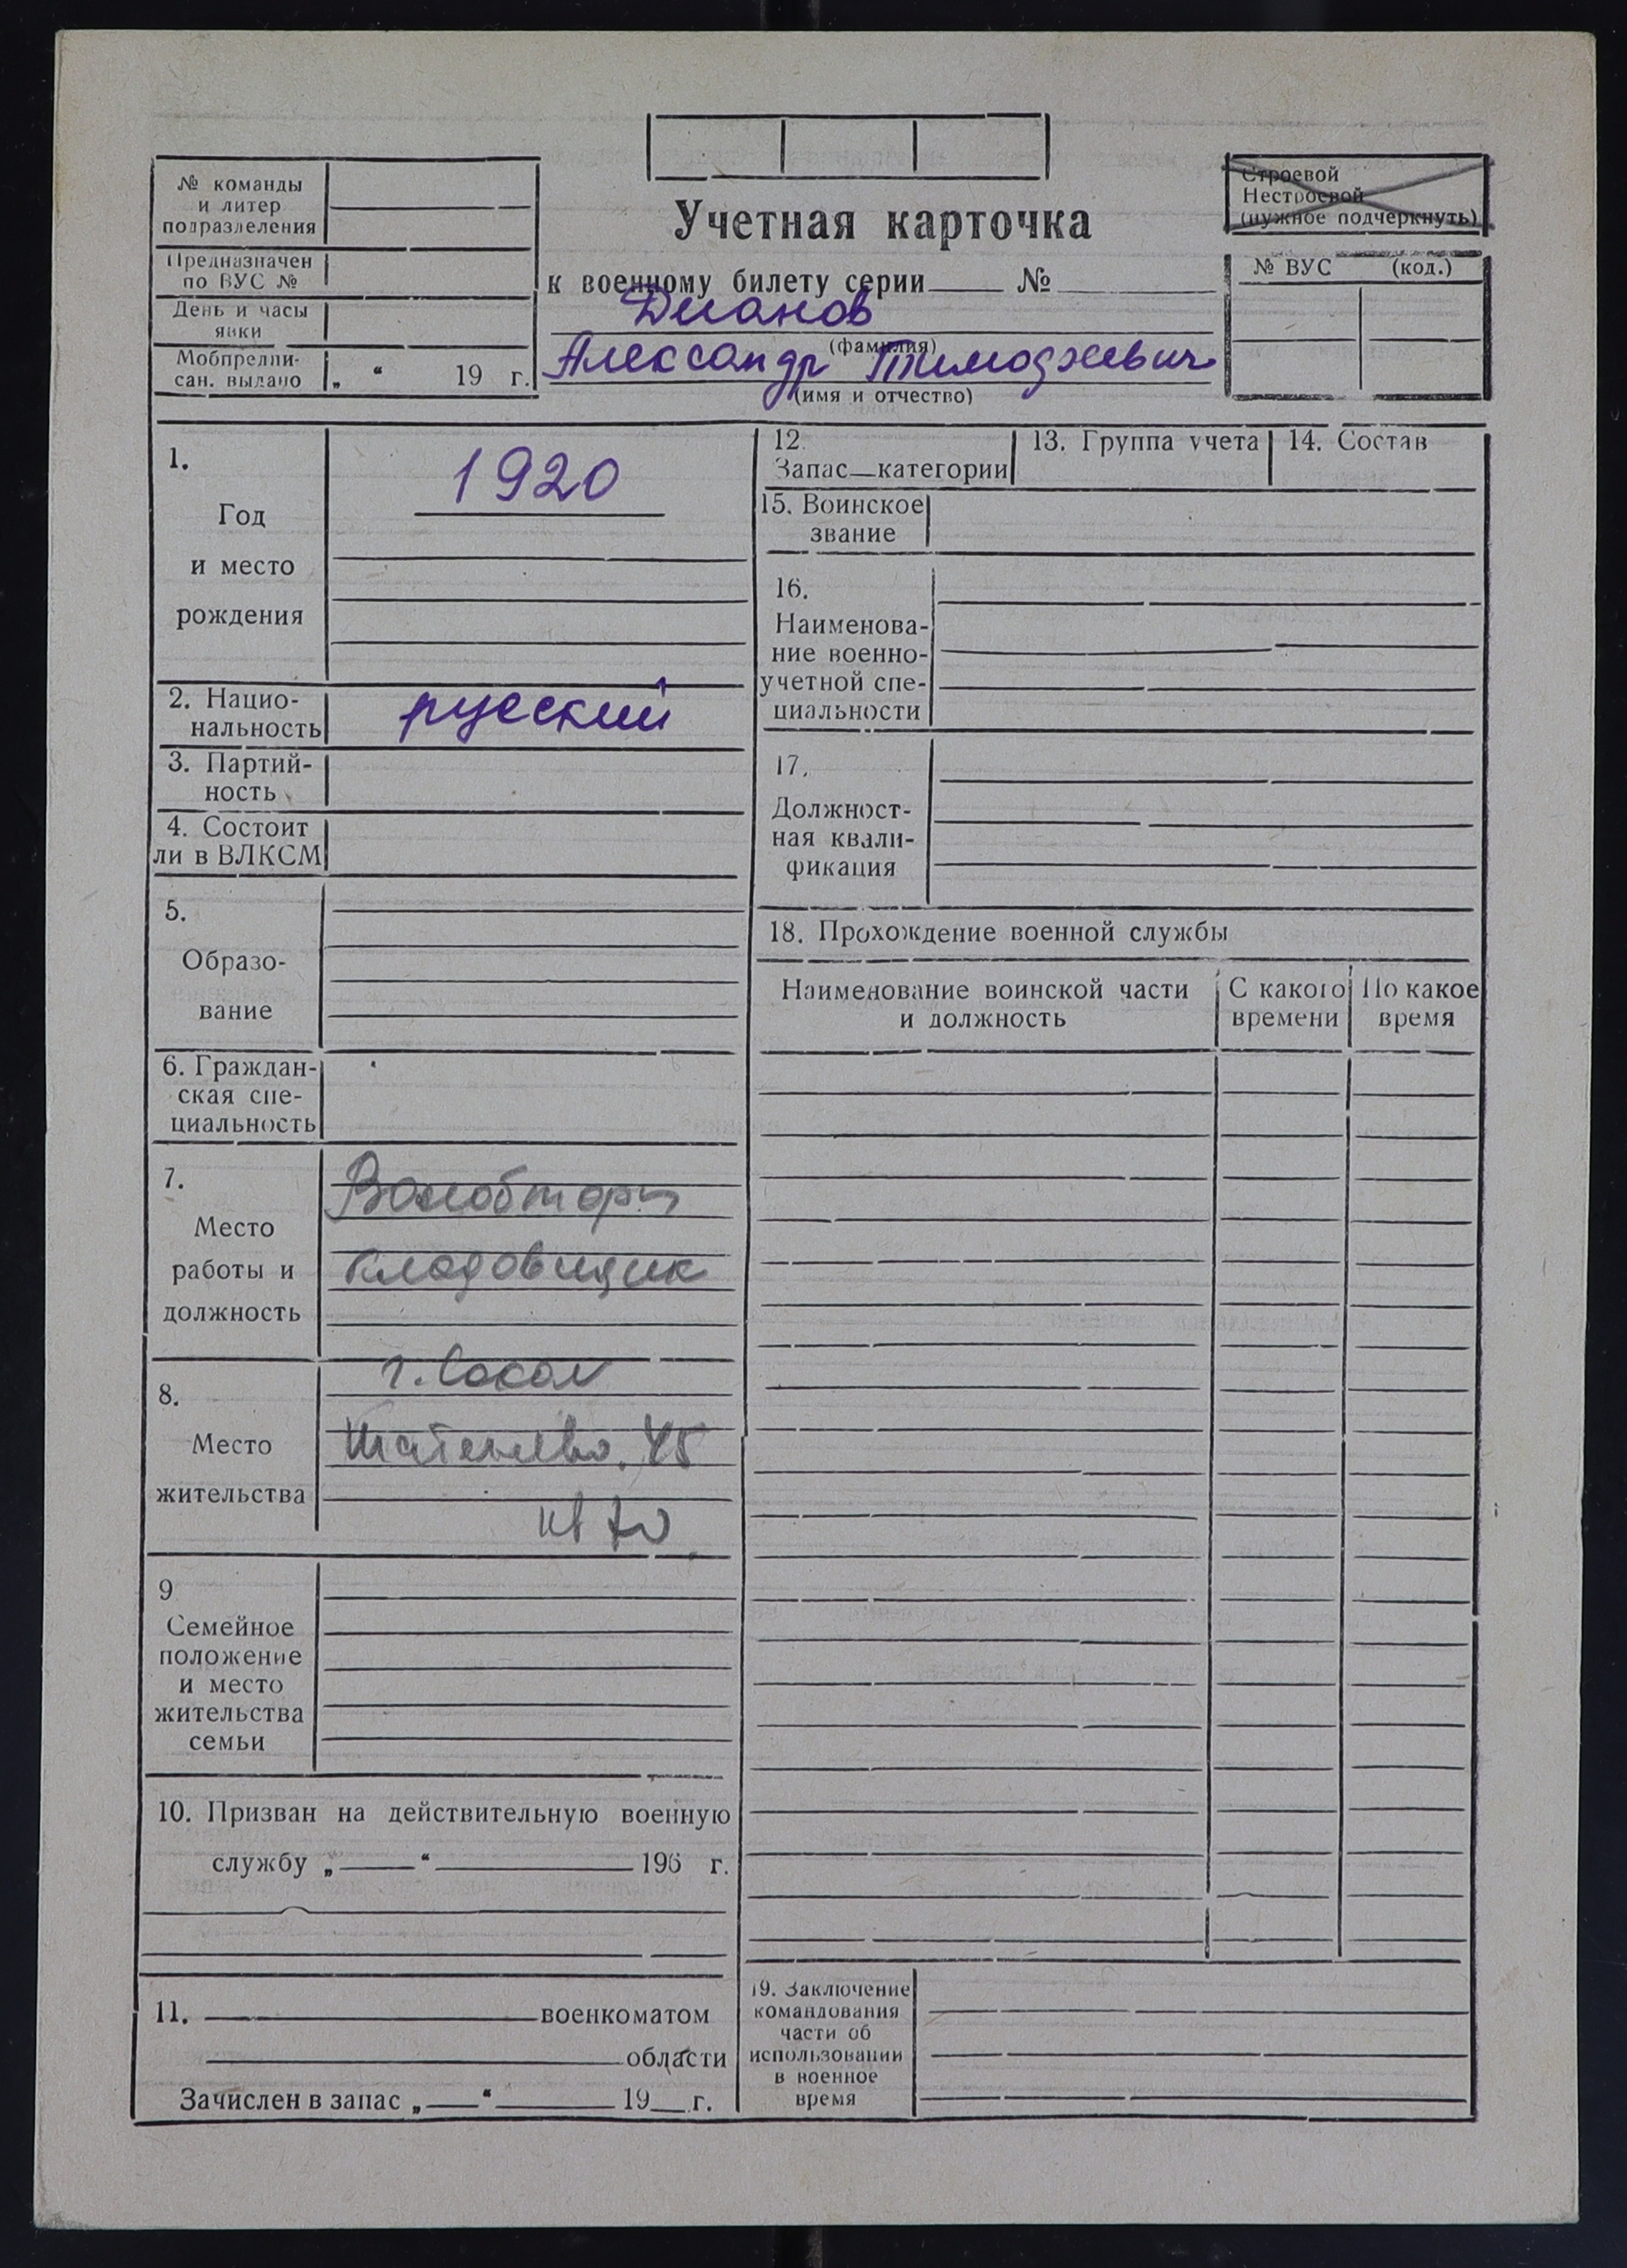 № команды
и литер
подразделения
Предназначен
по ВУС №
День и часы
явки
Мобпредпи-
сан. выдано „ “ 19 г.
Учетная карточка
к военному билету серии №
Дианов
(фамилия)
Александр Тимофеевич
(имя и отчество)
Строевой
Нестроевой
(нужное подчеркнуть)
№ ВУС (код.)
1.
Год
и место
рождения
1920
2. Нацио-
нальность
русский
3. Партий-
ность
4. Состоит
ли в ВЛКСМ
5.
Образо-
вание
6. Граждан-
ская спе-
циальность
7.
Место
работы и
должность
кладовщик
8.
Место
жительства
г. Сокол
45
кв
9
Семейное
положение
и место
жительства
семьи
10. Призван на действительную военную
службу „ “ 196 г.
11. военкоматом
области
Зачислен в запас „ “ 19 г.
12.
Запас—категории
13. Группа учета
14. Состав
15. Воинское
звание
16.
Наименова-
ние военно-
учетной спе-
циальности
17.
Должност-
ная квали-
фикация
18. Прохождение военной службы
Наименование воинской части
и должность
С какого
времени
По какое
время
19. Заключение
командования
части об
использовании
в военное
время